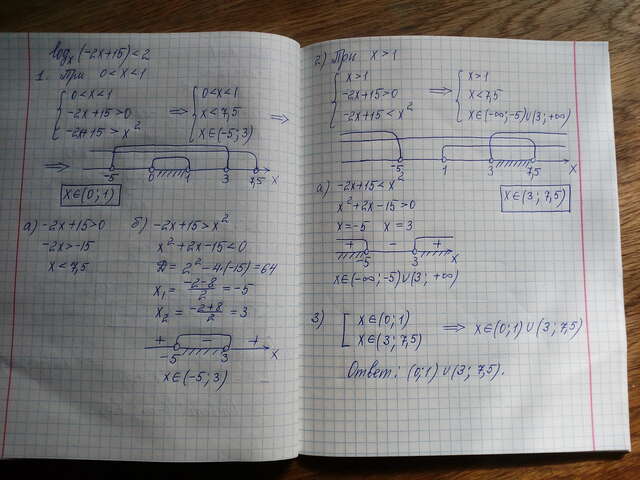 logₓ(-2x+15)<2
1. При 0<x<1
{ 0<x<1
-2x+15>0
-2x+15>x²
⇒ { 0<x<1
x<7,5
x∈(-5; 3)
⇒
⇒ -5 0 1 3 7,5 x
x∈(0; 1)
а) -2x+15>0
-2x>-15
x<7,5
б) -2x+15>x²
x²+2x-15<0
D=2²-4·(-15)=64
x₁= (-2-8)/2 =-5
x₂= (-2+8)/2 =3
+ - +
-5 3 x
x∈(-5; 3)
2) При x>1
{ x>1
-2x+15>0
-2x+15<x²
⇒ { x>1
x<7,5
x∈(-∞; -5)∪(3; +∞)
-5 1 3 7,5 x
x∈(3; 7,5)
а) -2x+15<x²
x²+2x-15>0
x=-5 x=3
+ - +
-5 3 x
x∈(-∞; -5)∪(3; +∞)
3) [ x∈(0; 1)
x∈(3; 7,5)
⇒ x∈(0; 1)∪(3; 7,5)
Ответ: (0; 1)∪(3; 7,5).